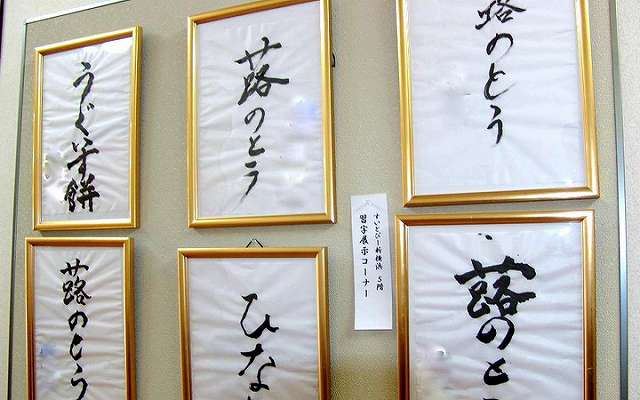 うぐいす餅
蕗のとう
蕗のとう
すいとぴー新横浜 5階
習字展示コーナー
蕗のとう
ひな
蕗のと